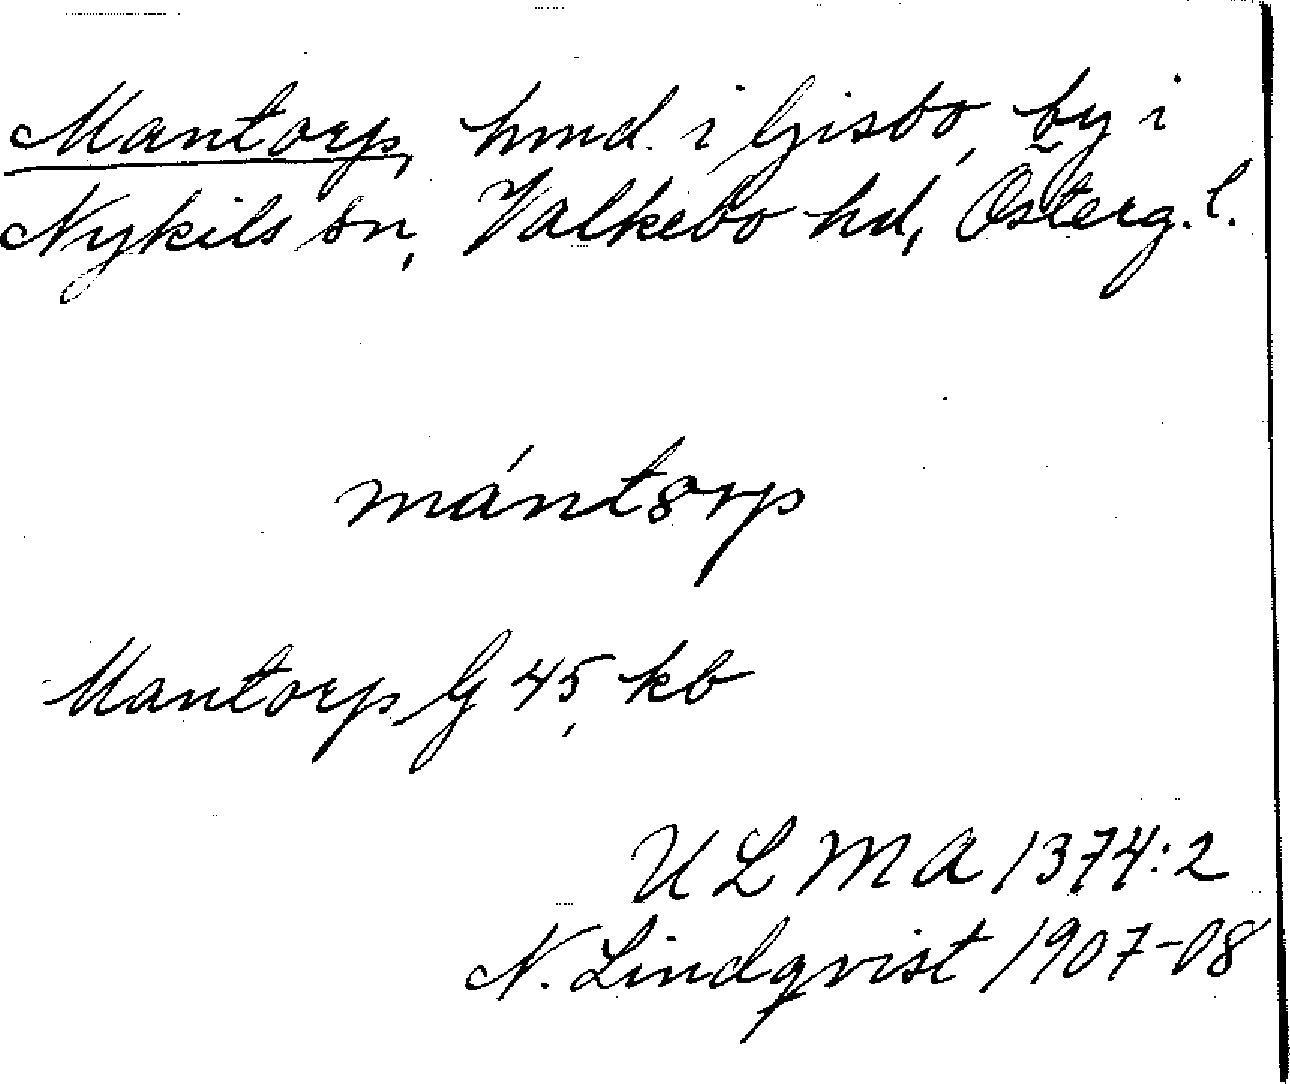 Mantorp, hmd. i Gisbo, by i
Nykils sn, Valkebo hd, Österg.l.
mántorp
Mantorp G 45, kb
ULMA 1374:2
N. Lindqvist 1907-08